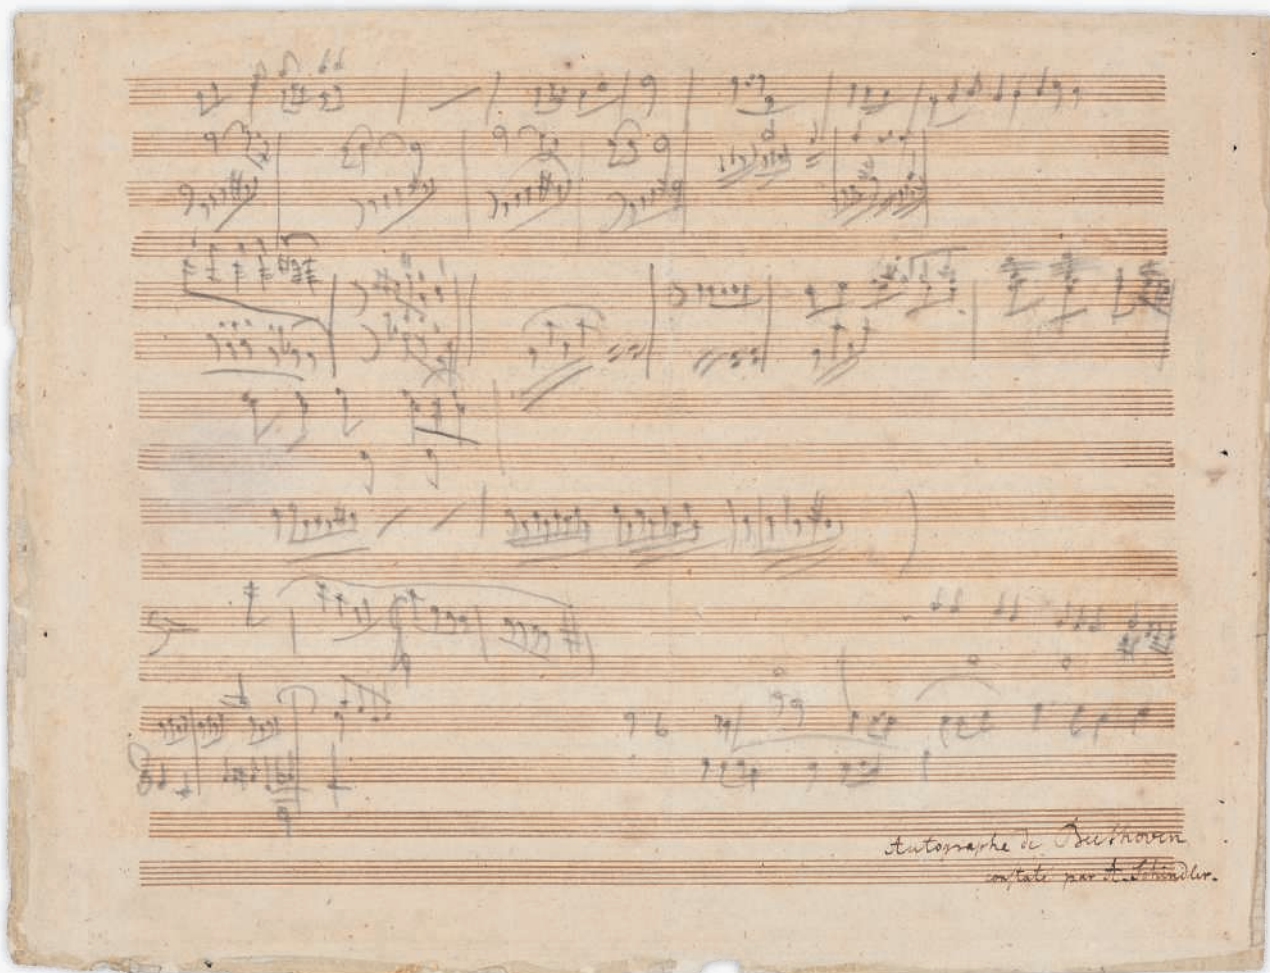 Autographe de Beethoven
constaté par A. Schindler.